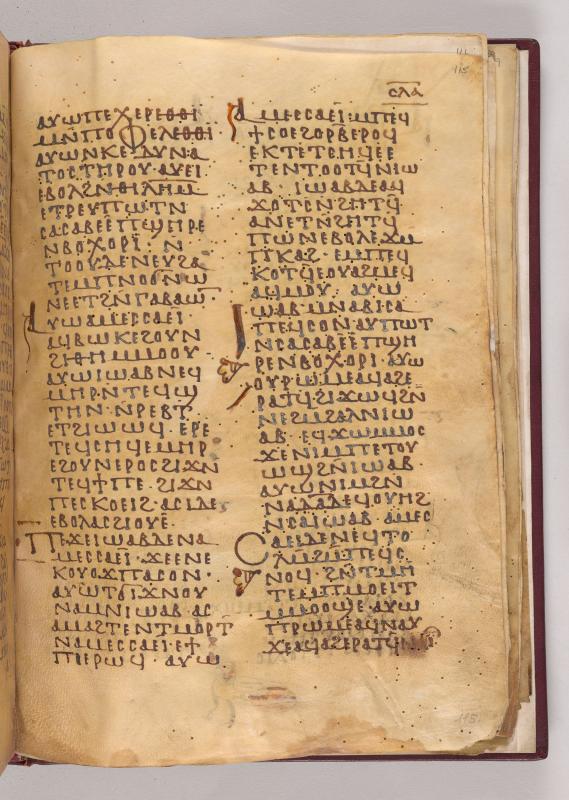 ⲥⲗⲁ
115
ⲁⲩⲱⲡⲉⲭⲉⲣⲉⲑⲑⲓ
ⲙⲛⲡⲟⲫⲉⲗⲉⲑⲑⲓ
ⲁⲩⲱⲛⲕⲉⲇⲩⲛⲁ
ⲧⲟⲥⲧⲏⲣⲟⲩ·ⲁⲩⲉⲓ
ⲉⲃⲟⲗϩⲛⲑⲓⲗⲏⲙ
ⲉⲧⲣⲉⲩⲡⲱⲧⲛ
ⲥⲁⲥⲁⲃⲉⲉⲡϣⲏⲣⲉ
ⲛⲃⲟⲭⲟⲣⲓ· ⲛ
ⲧⲟⲟⲩⲇⲉⲛⲉⲩϩⲁ
ⲧⲉⲙⲡⲛⲟϭⲛⲱ
ⲛⲉⲉⲧϩⲛⲅⲁⲃⲁⲱ̅·
ⲁⲩⲱⲁⲙⲉⲥⲥⲁⲉⲓ
ⲁϥⲃⲱⲕⲉϩⲟⲩⲛ
ϩⲓⲑⲏⲙⲙⲟⲟⲩ
ⲁⲩⲱⲓⲱⲁⲃⲛⲉϥ
ⲙⲏⲣⲛⲧⲉϥϣ
ⲧⲏⲛ·ⲛⲣⲉⲃⲧ
ⲉⲧϩⲓⲱⲱϥ·ⲉⲣⲉ
ⲧⲉϥⲥⲏϥⲉⲙⲏⲣ
ⲉϩⲟⲩⲛⲉⲣⲟⲥϩⲓϫⲛ
ⲧⲉϥϯⲡⲉ·ϩⲓϫⲛ
ⲡⲉⲥⲕⲟⲉⲓϩ·ⲁⲥⲓⲇⲉ
ⲉⲃⲟⲗⲁⲥϩⲓⲟⲩⲉ·
ⲡⲉϫⲉⲓⲱⲁⲃⲇⲉⲛⲁ
ⲙⲉⲥⲥⲁⲉⲓ·ϫⲉⲉⲛⲉ
ⲕⲟⲩⲟϫⲡⲁⲥⲟⲛ·
ⲁⲩⲱⲧϭⲓϫⲛⲟⲩ
ⲛⲁⲙⲛⲓⲱⲁⲃ·ⲁⲥ
ⲁⲙⲁϩⲧⲉⲛⲧⲙⲟⲣⲧ
ⲛⲁⲙⲉⲥⲥⲁⲉⲓⲉϯ
ⲡⲓⲉⲣⲱϥ·ⲁⲩⲱ
ⲁⲙⲉⲥⲥⲁⲉⲓ·ⲙⲡⲉϥ
ϯϩⲟⲉϩⲟⲣⲃⲉⲣⲟϥ
ⲉⲕⲧⲉⲧⲥⲏϥⲉⲉ
ⲧⲉⲛⲧⲟⲟⲧϥⲛⲓⲱ
ⲁⲃ·ⲓⲱⲁⲃⲇⲉⲁϥ
ϫⲟⲧϥⲛϩⲏⲧϥ
ⲁⲛⲉⲧⲛϩⲏⲧϥ
ⲡⲱⲛⲉⲃⲟⲗⲉϫⲙ
ⲡⲕⲁϩ·ⲉⲙⲡⲉϥ
ⲕⲟⲧϥⲉⲟⲩⲁϩⲙⲉϥ
ⲁϥⲙⲟⲩ·ⲁⲩⲱ
ⲓⲱⲁⲃⲙⲛⲁⲃⲓⲥⲁ
ⲡⲉϥⲥⲟⲛⲁⲩⲡⲱⲧ
ⲛⲥⲁⲥⲁⲃⲉⲉⲡϣⲏ
ⲣⲉⲛⲃⲟⲭⲟⲣⲓ·ⲁⲩⲱ
ⲟⲩⲣⲱⲙⲉⲁϥⲁϩⲉ
ⲣⲁⲧϥϩⲓϫⲱϥϩⲛ̅
ⲛⲉϩⲙϩⲁⲗⲛⲓⲱ
ⲁⲃ·ⲉϥϫⲱⲙⲙⲟⲥ
ϫⲉⲛⲓⲙⲡⲉⲧⲟⲩ
ⲱϣϩⲛⲓⲱⲁⲃ
ⲁⲩⲱⲛⲓⲙϩⲛ
ⲛⲁⲇⲁⲇⲉϥⲟⲩⲏϩ
ⲛⲥⲁⲓⲱⲁⲃ·ⲁⲙⲉⲥ
ⲥⲁⲉⲓⲇⲉⲛⲉϥⲧⲟ
ⲗⲙϩⲙⲡⲉϥⲥ
ⲛⲟϥ·ϩⲛⲧⲙⲏ
ⲧⲉⲙⲡⲙⲟⲉⲓⲧ
ⲙⲙⲟⲟϣⲉ·ⲁⲩⲱ
ⲡⲣⲱⲙⲉⲁϥⲛⲁⲩ
ϫⲉⲁϥⲁϩⲉⲣⲁⲧϥⲛ